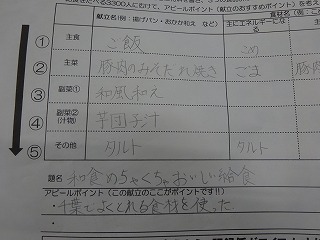 対象とする3300人にむけて、アピールポイント(献立のおすすめポイント)を考え
献立名(例:揚げパン・おひか和え など)
主にエネルギーにな
① 主食 ご飯 こめ
② 主菜 豚肉のみそだれ焼き ごま 豚肉
③ 副菜① 和風和え
④ 副菜②(汁物) 芋団子汁
⑤ その他 タルト タルト
題名 和食めちゃくちゃおいしい給食
アピールポイント(この献立のここがポイントです!!)
・千葉でよくとれる食材を使った